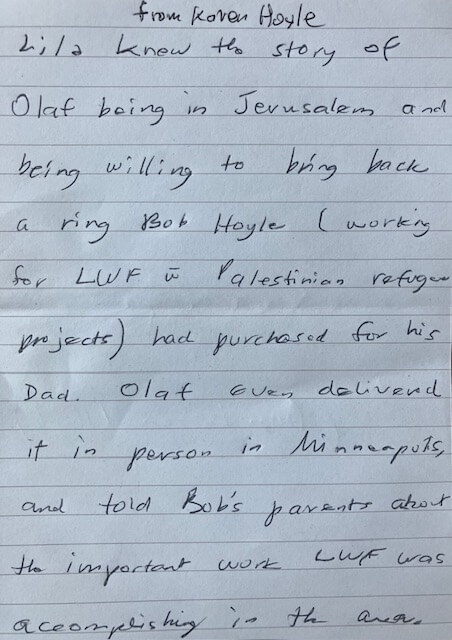 from Karen Hoyle
Lila knew the story of
Olaf being in Jerusalem and
being willing to bring back
a ring Bob Hoyle (working
for LWF w̄ Palestinian refugee
projects) had purchased for his
Dad. Olaf even delivered
it in person in Minneapolis,
and told Bob's parents about
the important work LWF was
accomplishing in the area.